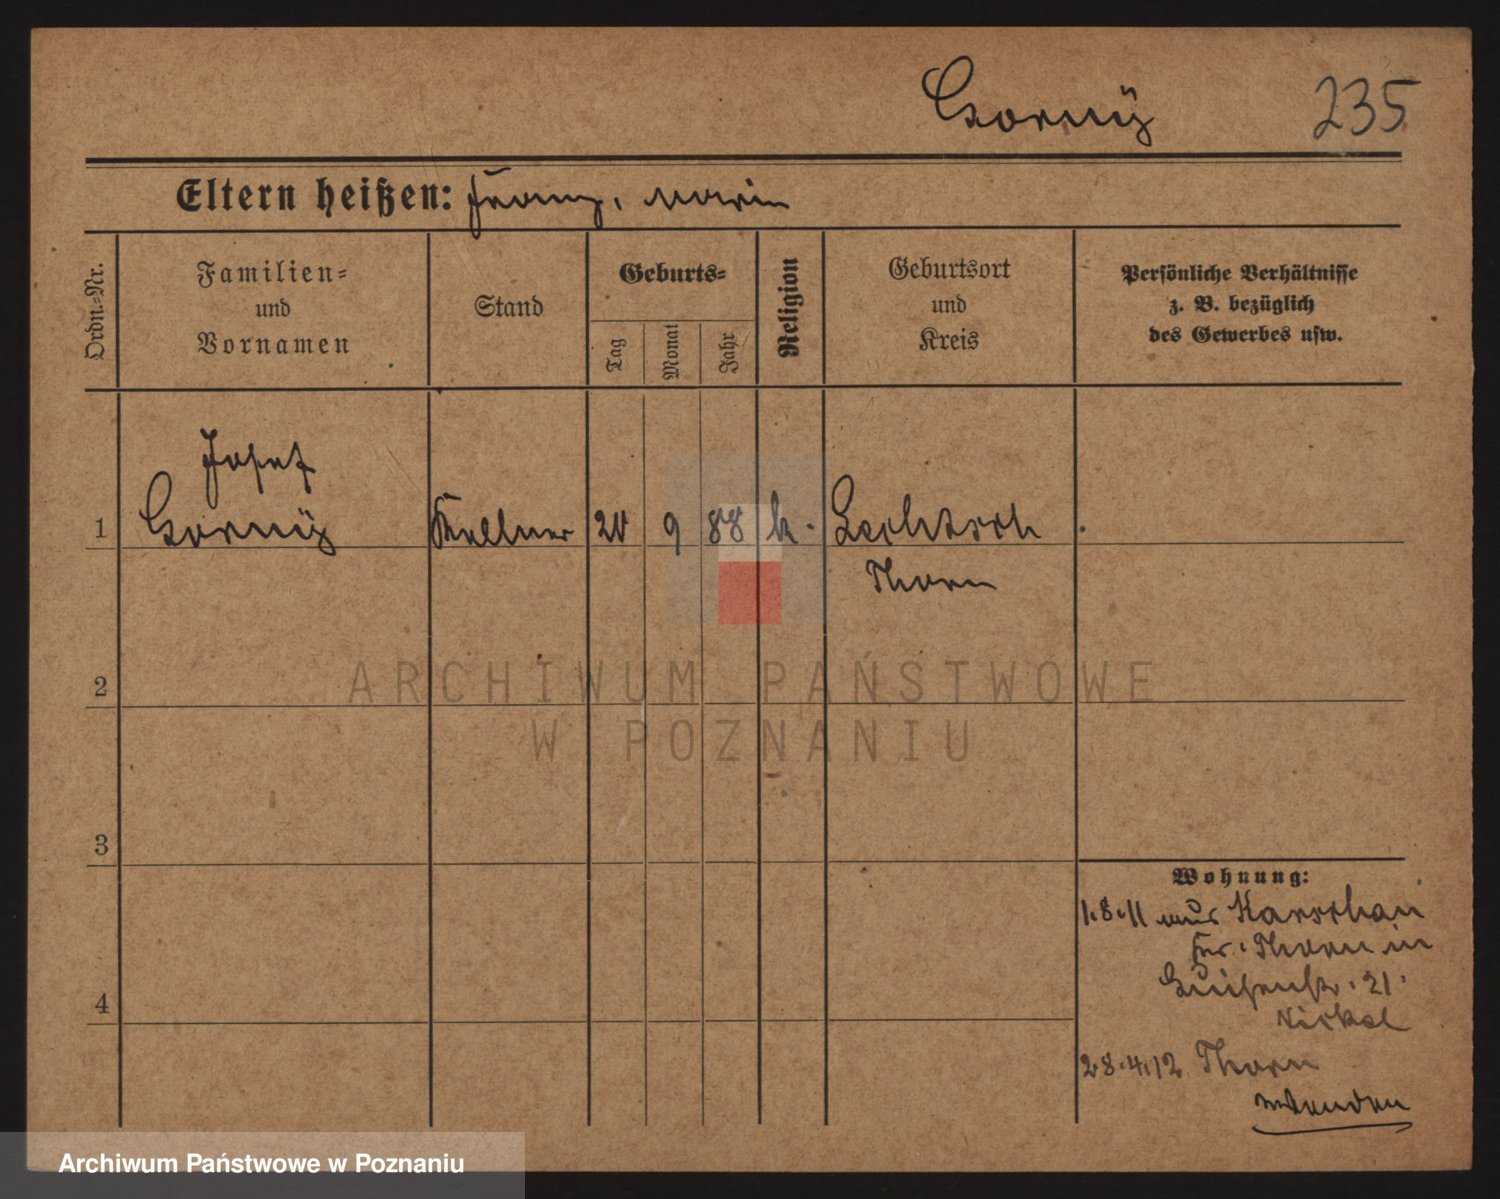 Gorny 235
Eltern heißen: Franz, Marie
Ordn.-Nr.
Familien-
und
Vornamen
Stand
Geburts-
Tag
Monat
Jahr
Religion
Geburtsort
und
Kreis
Persönliche Verhältnisse
z. B. bezüglich
des Gewerbes usw.
Josef
1 Gorny Kellner 20 9 88 k.
Thorn
2
3
4
Wohnung:
1.8.11 aus
Krs. Thorn in
Luisenstr. 21.
Nickel
28.4.12 Thorn
wenden
ARCHIWUM PAŃSTWOWE
W POZNANIU
Archiwum Państwowe w Poznaniu